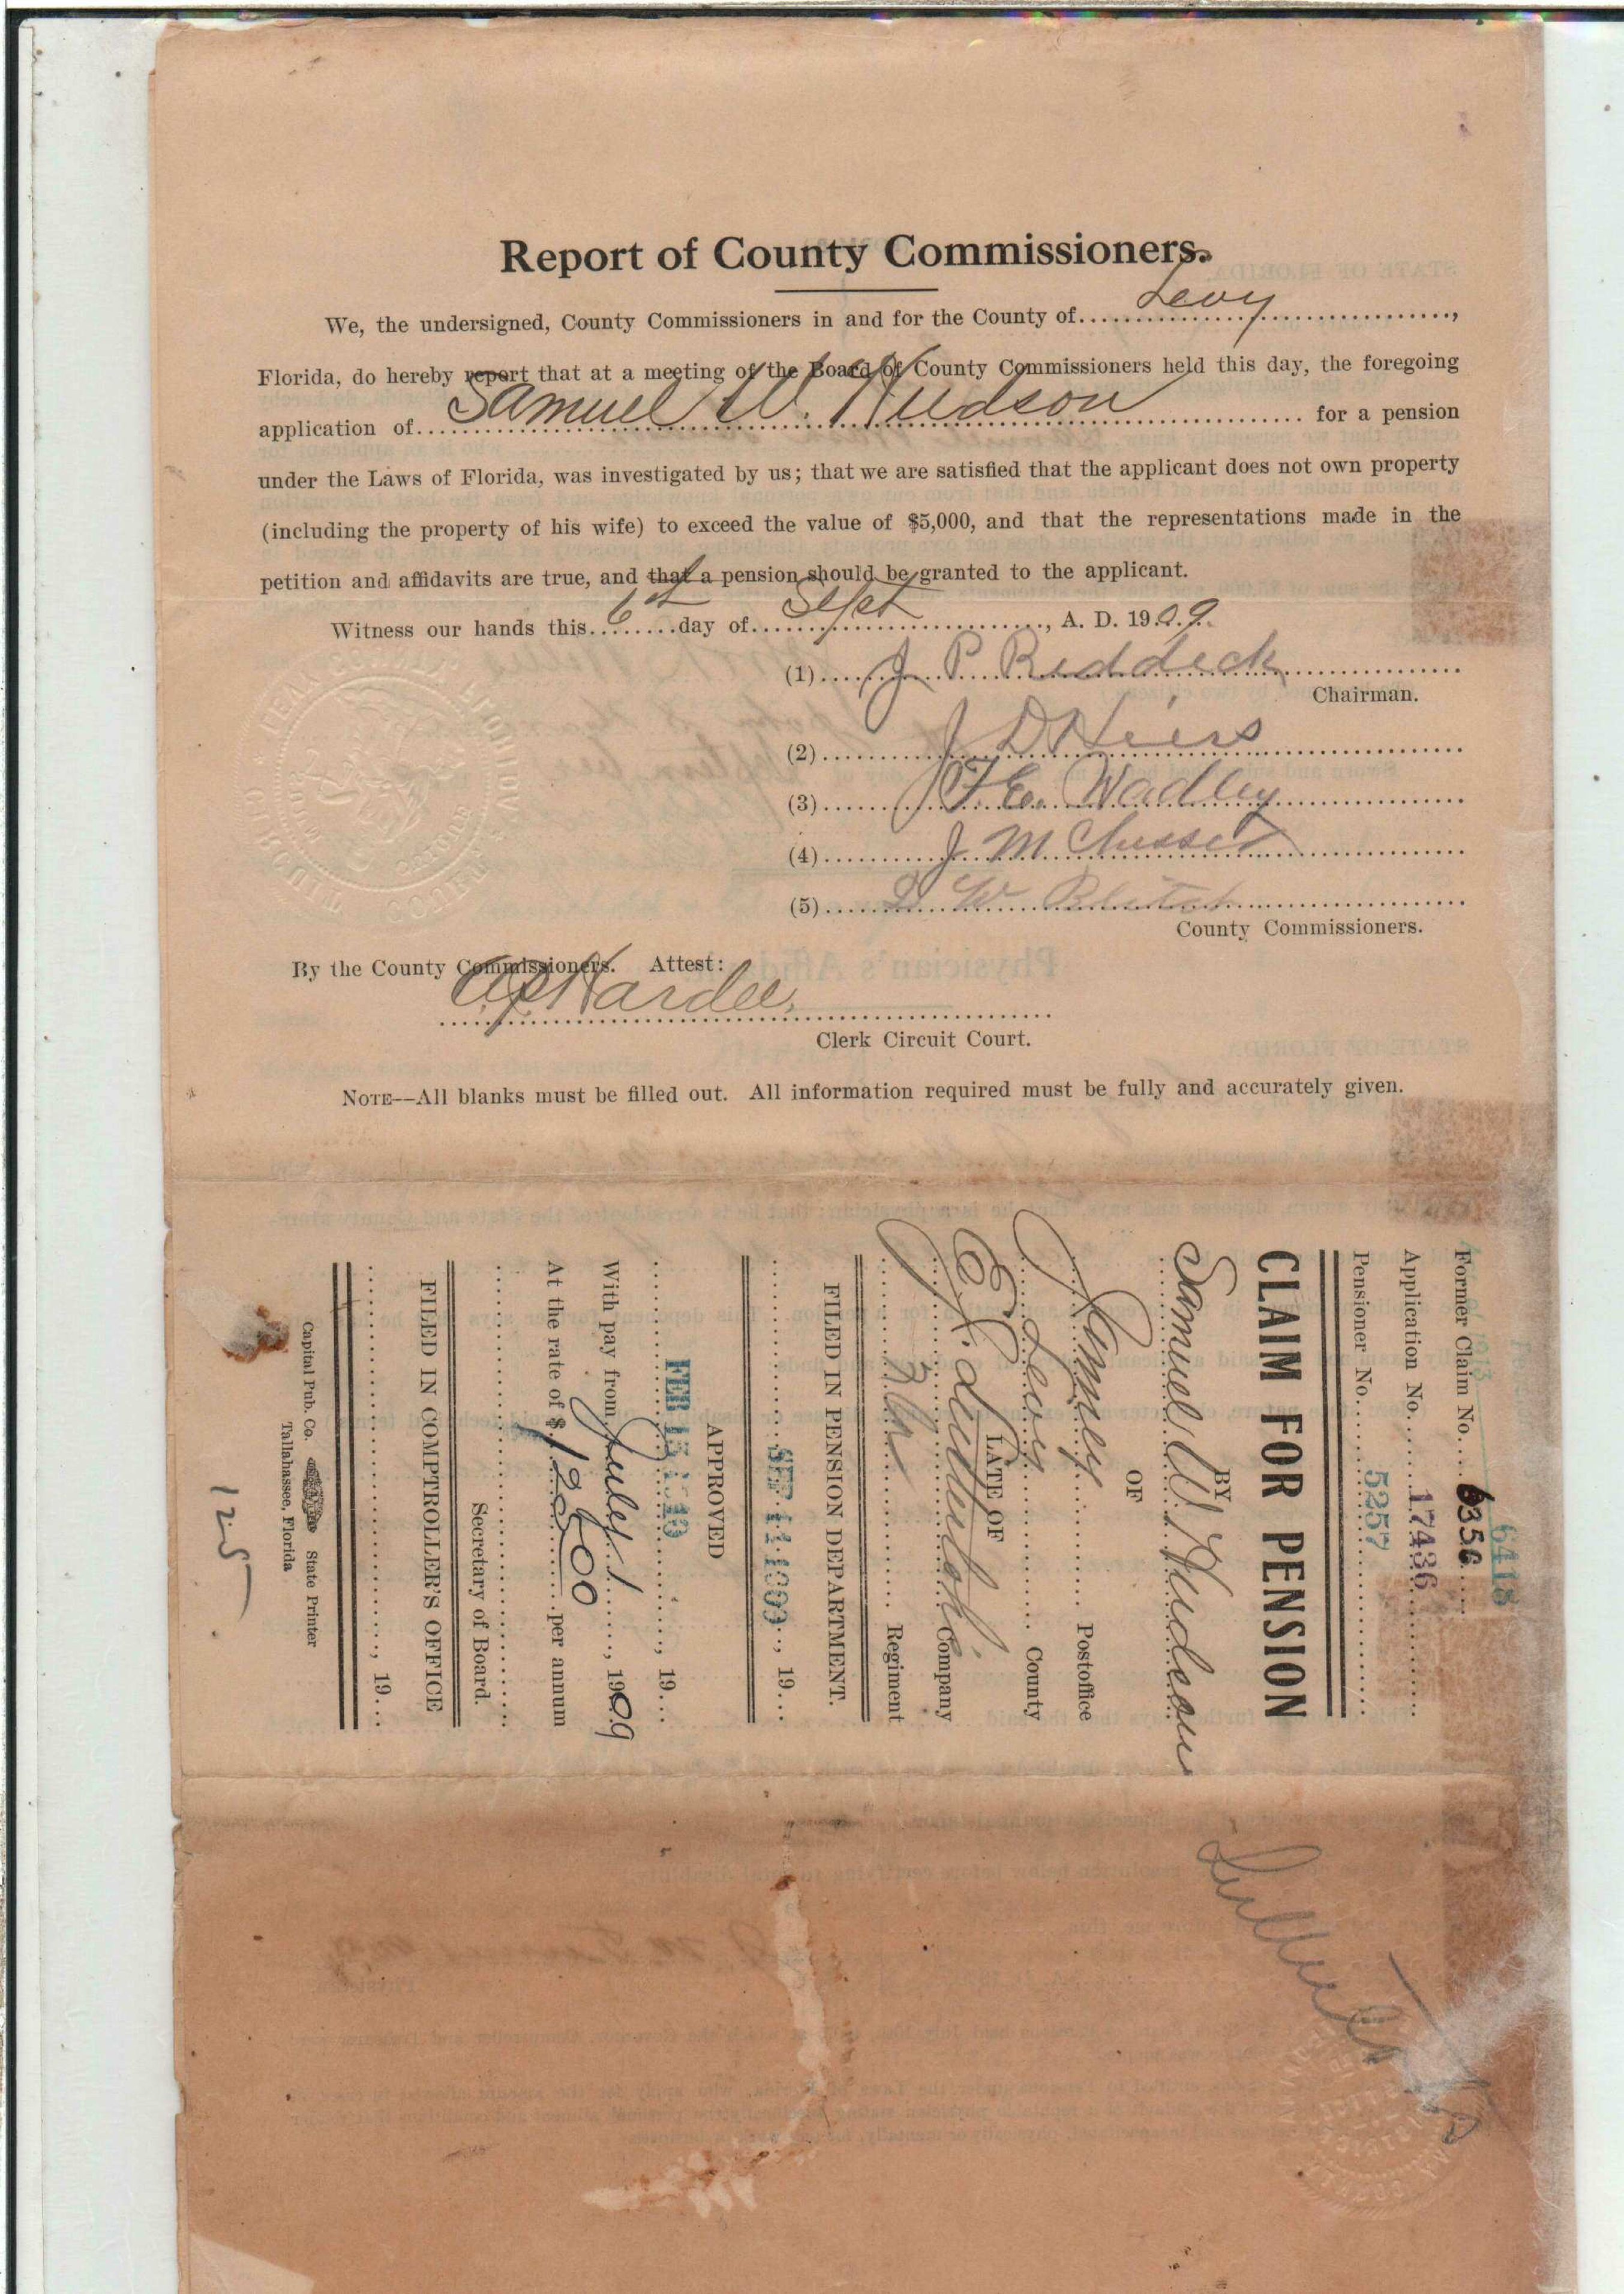 Report of County Commissioners.
We, the undersigned, County Commissioners in and for the County of Levy,
Florida, do hereby report that at a meeting of the Board of County Commissioners held this day, the foregoing
application of Samuel W. Hudson for a pension
under the Laws of Florida, was investigated by us; that we are satisfied that the applicant does not own property
(including the property of his wife) to exceed the value of $5,000, and that the representations made in the
petition and affidavits are true, and that a pension should be granted to the applicant.
Witness our hands this 6th day of Sept, A. D. 1909.
(1) J P Reddick
Chairman.
(2) J D Hiers
(3) T. E. Wadley
(4) J. M
(5) W Blitch
County Commissioners.
By the County Commissioners. Attest:
Hardee
Clerk Circuit Court.
NOTE--All blanks must be filled out. All information required must be fully and accurately given.
6418
Former Claim No. 6356
Application No. 17436
Pensioner No. 5257
CLAIM FOR PENSION
BY
Samuel W. Hudson
OF
Postoffice
Levy County
LATE OF
Company
Regiment
FILED IN PENSION DEPARTMENT.
SEP 11 1909, 19
APPROVED
FEB 15 1910, 19
With pay from July 1, 1909
At the rate of $ 120.00 per annum
Secretary of Board.
FILED IN COMPTROLLER'S OFFICE
, 19
Capital Pub. Co. State Printer
Tallahassee, Florida
125